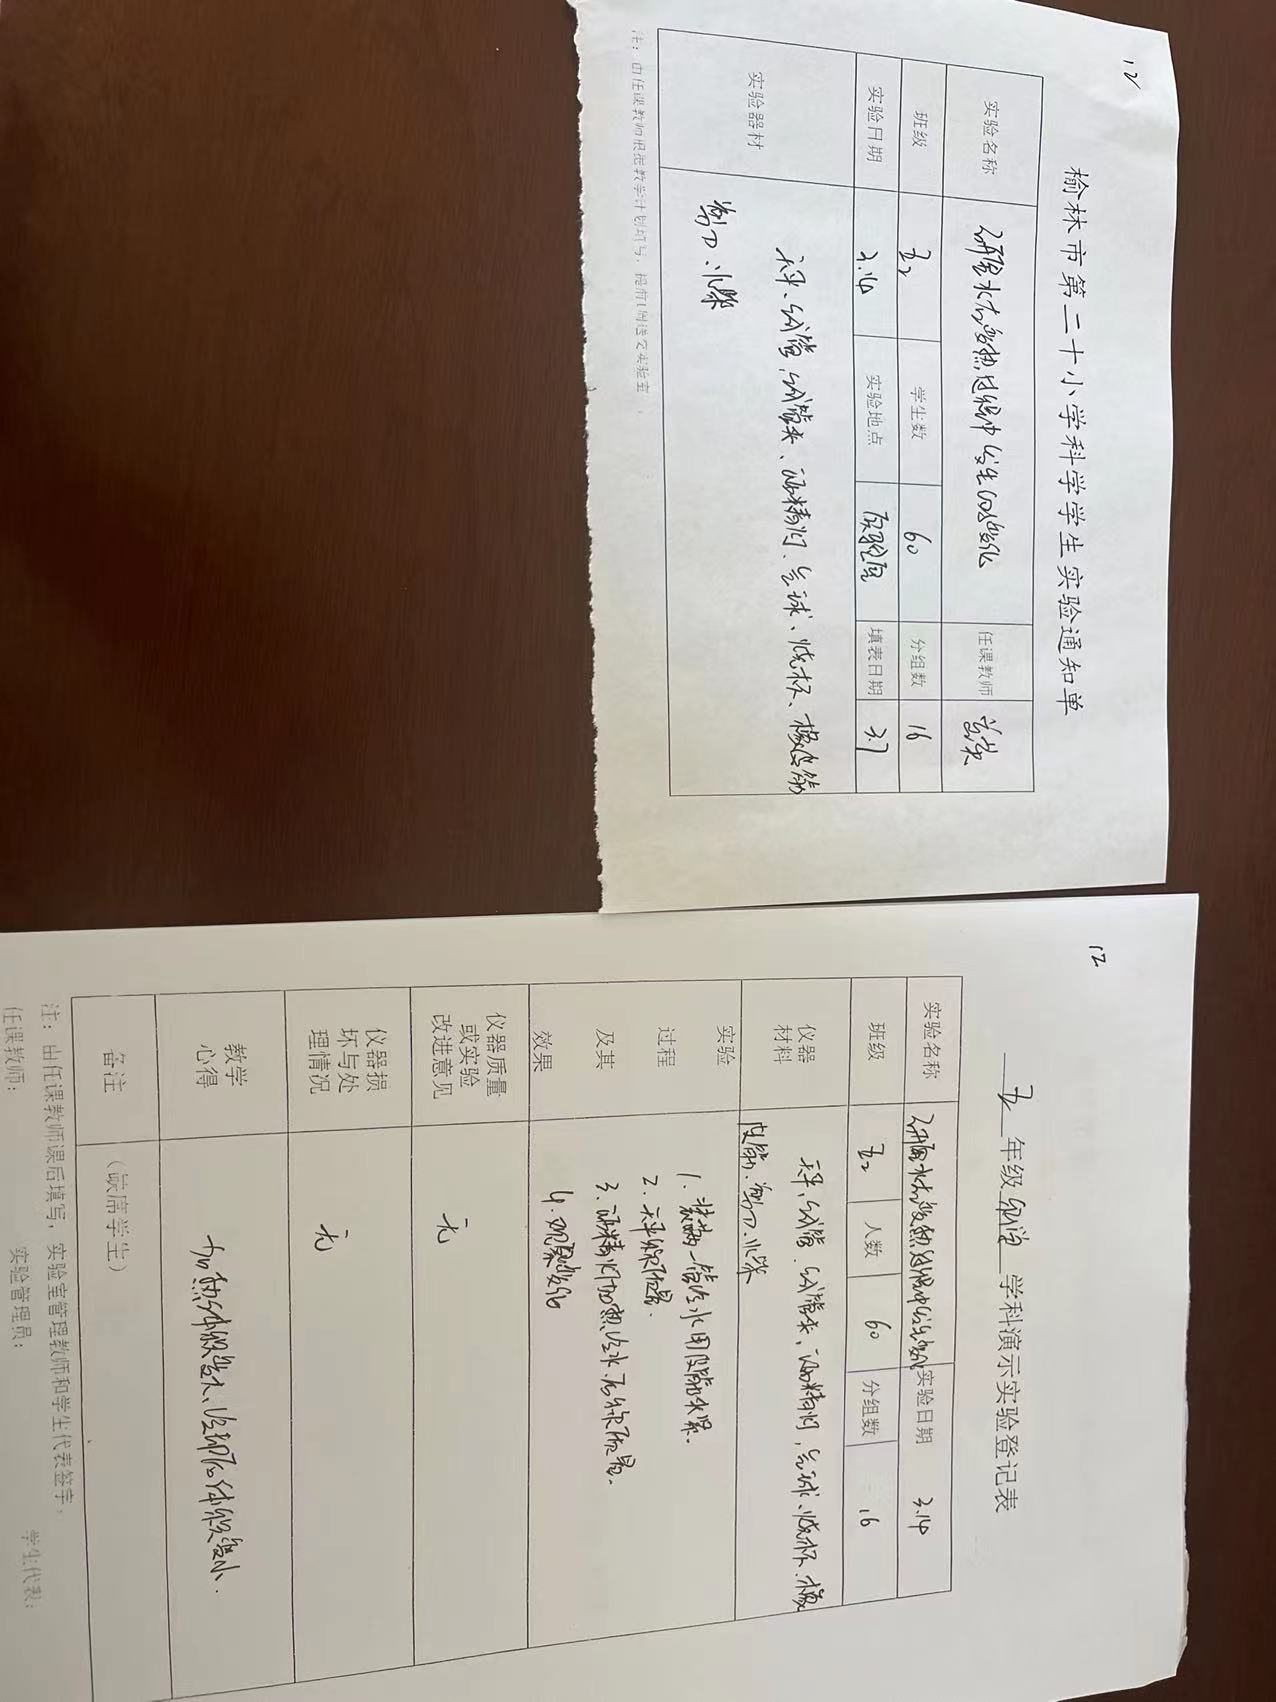 12
榆林市第二十小学科学学生实验通知单
实验名称 研究水在变热过程中发生的变化 任课教师
班级 五2 学生数 60 分组数 16
实验日期 3.14 实验地点 实验室 填表日期 3.7
实验器材 天平、试管、试管夹、酒精灯、气球、烧杯、橡皮筋
剪刀、火柴
注：由任课教师根据教学计划填写，提前1周送交实验室
12
五年级科学学科演示实验登记表
实验名称 研究水在变热过程中发生的变化 实验日期 3.14
班级 五2 人数 60 分组数 16
仪器材料 天平、试管、试管夹、酒精灯、气球、烧杯、橡
皮筋、剪刀、火柴
实验过程及其效果
1. 装满一管冷水用皮筋
2. 天平称质量.
3. 酒精灯加热冷水.后称质量.
4. 观察变化
仪器质量或实验改进意见 无
仪器损坏与处理情况 无
教学心得 加热体积变大、冷却后体积变小.
备注 （缺席学生）
注：由任课教师课后填写，实验室管理教师和学生代表签字，
任课教师： 实验管理员： 学生代表：